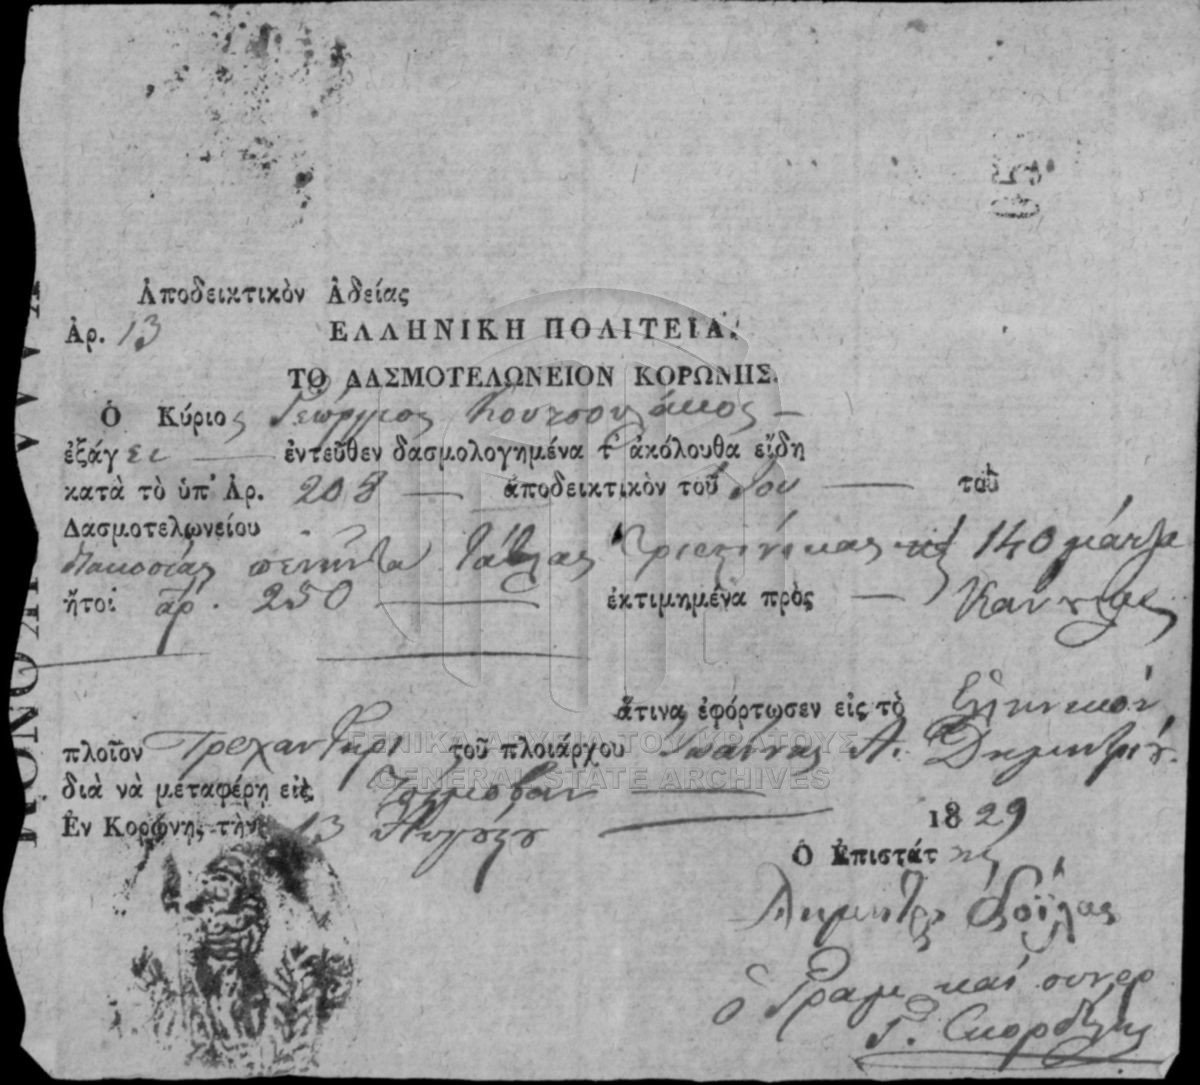 Ἀποδεικτικὸν Ἀδείας
Ἀρ. 13 ΕΛΛΗΝΙΚΗ ΠΟΛΙΤΕΙΑ.
ΤΟ ΔΑΣΜΟΤΕΛΩΝΕΙΟΝ ΚΟΡΩΝΗΣ.
Ὁ Κύριος Γεώργιος Κουτσουλάκος —
ἐξάγει — ἐντεῦθεν δασμολογημένα τ' ἀκόλουθα εἴδη
κατὰ τὸ ὑπ' Ἀρ. 208 — ἀποδεικτικὸν τοῦ Ἰδίου — τοῦ
Δασμοτελωνείου
διακοσίας πενήντα τάβλας 140
ἤτοι ἀρ. 250 — ἐκτιμημένα πρὸς —
ἅτινα ἐφόρτωσεν εἰς τὸ Ἑλληνικὸν
πλοῖον Τρεχαντήρι τοῦ πλοιάρχου Ἰωάννας Α. Δημητρίου.
διὰ νὰ μεταφέρῃ εἰς —
Ἐν Κορώνῃ, τὴν 13 Αὐγούστου — 1829
Ὁ Ἐπιστάτης
Δημήτρις
ὁ Γραμ. καὶ συνερ
Γ.
ΓΕΝΙΚΑ ΑΡΧΕΙΑ ΤΟΥ ΚΡΑΤΟΥΣ
GENERAL STATE ARCHIVES